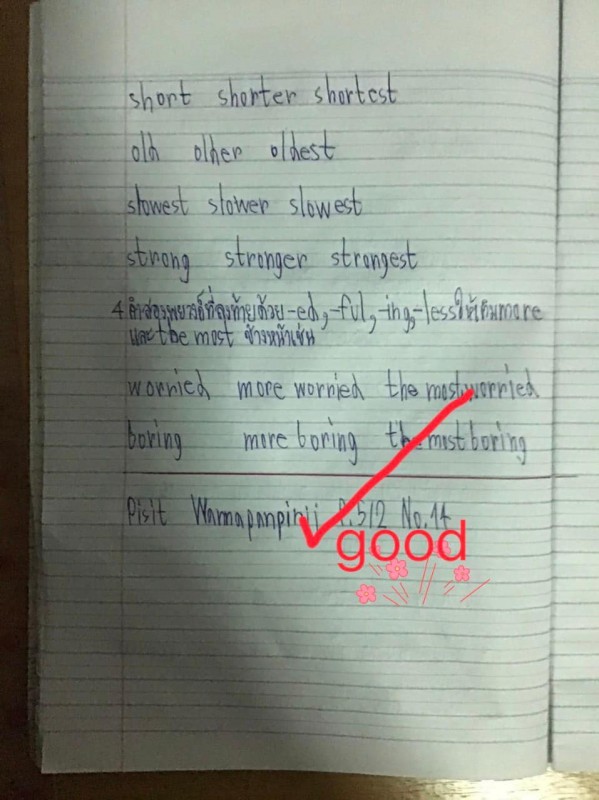 short shorter shortest
old older oldest
slowest slower slowest
strong stronger strongest
4 คำสองพยางค์ที่ลงท้ายด้วย -ed, -ful, -ing, -less ให้เติม more
และ the most ข้างหน้าเช่น
worried more worried the most worried
boring more boring the most boring
Pisit No.14
good